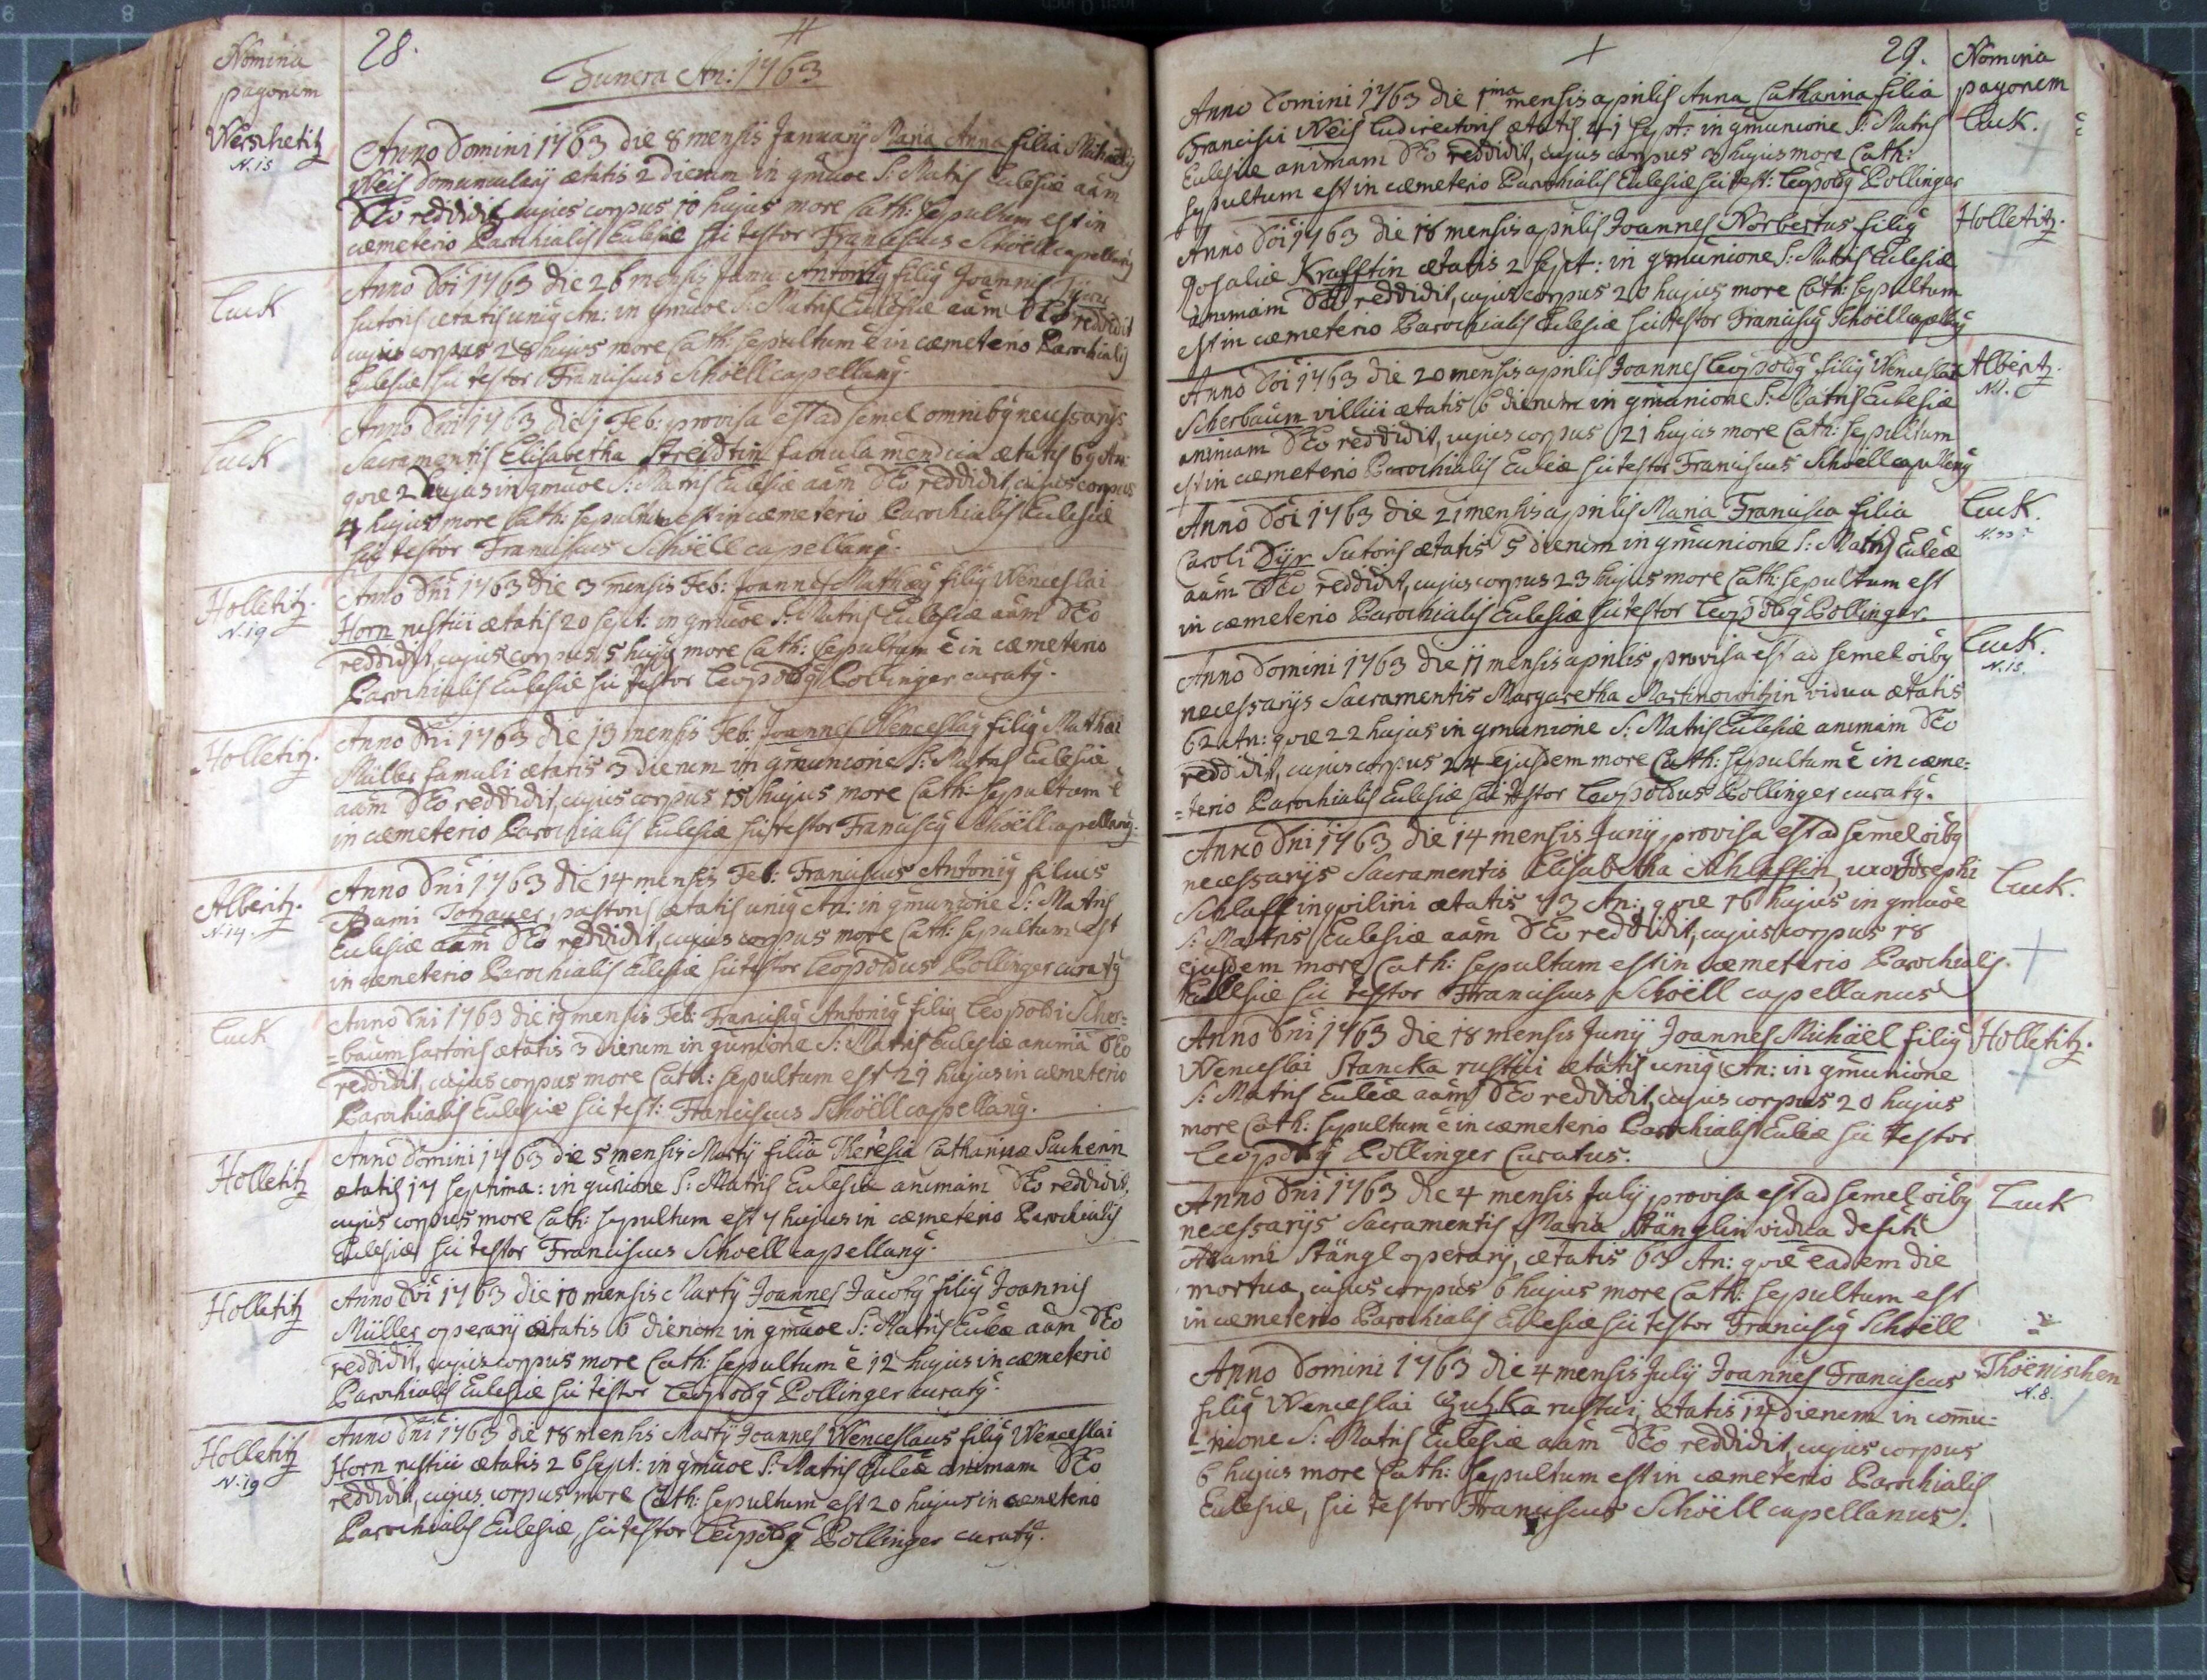 Nomina
pagorum
28.
Funera An: 1763
Werschetitz
N. 15
Anno Domini 1763 die 8 mensis Januarij Maria Anna filia Michaelis
Weis Domuncularij ætatis 2 dierum in gmuoe S: Matris Eclesiæ aam
DEo reddidit, cujus corpus 10 hujus more Cath: sepultum est in
cæmeterio Parochialis Eclesiæ sic testor Franciscus Schöell capellanus
Luck
Anno Doi 1763 die 26 mensis Janu: Antonius filius Joannis
sutoris ætatis unius An: in gmuoe S: Matris Eclesiæ aam DEo reddidit
cujus corpus 28 hujus more Cath: sepultum e in cæmeterio Parochialis
Eclesiæ sic testor Franciscus Schöell capellanus.
Luck
Anno Dni 1763 die 1 Feb: provisa est ad semel omnibus necessarijs
Sacramentis Elisabetha Streidtin famula mendica ætatis 69 An:
quæ 2 hujus in gmuoe S: Matris Eclesiæ aam DEo reddidit, cujus corpus
4 hujus more Cath: sepultum est in cæmeterio Parochialis Eclesiæ
sic testor Franciscus Schöell capellanus.
Holletitz.
N. 19
Anno Dni 1763 die 3 mensis Feb: Joannes Mathæus filius Wenceslai
Horn rustici ætatis 20 sept: in gmuoe S: Matris Eclesiæ aam DEo
reddidit, cujus corpus 5 hujus more Cath: sepultum e in cæmeterio
Parochialis Eclesiæ sic testor Leopoldus Pollinger curatus.
Holletitz.
Anno Dni 1763 die 13 mensis Feb: Joannes Wenceslaus filius Mathæi
Müller famuli ætatis 3 dierum in gmunione S: Matris Eclesiæ
aam DEo reddidit, cujus corpus 15 hujus more Cath: sepultum e
in cæmeterio Parochialis Eclesiæ sic testor Franciscus Schöell capellanus.
Alberitz.
N. 14.
Anno Dni 1763 die 14 mensis Feb: Franciscus Antonius filius
Adami Totzauer, pastoris ætatis unius An: in gmunione S: Matris
Eclesiæ aam DEo reddidit, cujus corpus more Cath: sepultum est
in cæmeterio Parochialis Eclesiæ sic testor Leopoldus Pollinger curatus
Luck
Anno Dni 1763 die 19 mensis Feb: Franciscus Antonius filius Leopoldi Scher=
=baum sartoris ætatis 3 dierum in gunione S: Matris Eclesiæ anima DEo
reddidit, cujus corpus more Cath: sepultum est 21 hujus in cæmeterio
Parochialis Eclesiæ sic test: Franciscus Schöell capellanus.
Holletitz
Anno Domini 1763 die 5 mensis Martij filia Theresia Catharinæ Suchenin
ætatis 17 septima: in gunione S: Matris Eclesiæ animam DEo reddidit,
cujus corpus more Cath: sepultum est 7 hujus in cæmeterio Parochialis
Eclesiæ sic testor Franciscus Schoell capellanus.
Holletitz
Anno Doi 1763 die 10 mensis Martij Joannes Jacobus filius Joannis
Müller operarij ætatis 6 dierum in gmuoe S: Matris Eclæ aam DEo
reddidit, cujus corpus more Cath: sepultum e 12 hujus in cæmeterio
Parochialis Eclesiæ sic testor Leopoldus Pollinger curatus.
Holletitz
N. 19
Anno Dni 1763 die 18 mensis Martij Joannes Wenceslaus filius Wenceslai
Horn rustici ætatis 26 sept: in gmuoe S: Matris Eclæ animam DEo
reddidit, cujus corpus more Cath: sepultum est 20 hujus in cæmeterio
Parochialis Eclesiæ, sic testor Leopoldus Pollinger curatus.
29.
Nomina
pagorum
Luck.
Anno Domini 1763 die 1ma mensis aprilis Anna Catharina filia
Francisci Weis Ludirectoris ætatis 41 sept: in gmunione S: Matris
Eclesiæ animam DEo reddidit, cujus corpus 3 hujus more Cath:
sepultum est in cæmeterio Parochialis Eclesiæ sic test: Leopoldus Pollinger
Holletitz.
Anno Doi 1763 die 18 mensis aprilis Joannes Norbertus filius
Rosaliæ Krafftin ætatis 2 sept: in gmunione S: Matris Eclesiæ
animam DEo reddidit, cujus corpus 20 hujus more Cath: sepultum
est in cæmeterio Parochialis Eclesiæ sic testor Franciscus Schöell capellanus
Alberitz.
Anno Doi 1763 die 20 mensis aprilis Joannes Leopoldus filius Wenceslai
Scherbaum villici ætatis 6 dierum in gmunione S: Matris Eclesiæ
animam DEo reddidit, cujus corpus 21 hujus more Cath: sepultum
est in cæmeterio Parochialis Eclesiæ sic testor Franciscus Schoell capellanus
Luck.
N. 33.
Anno Doi 1763 die 21 mensis aprilis Maria Francisca filia
Caroli Dÿr Sutoris ætatis 5 dierum in gmunione S: Matris Eclæ
aam DEo reddidit, cujus corpus 23 hujus more Cath: sepultum est
in cæmeterio Parochialis Eclesiæ sic testor Leopoldus Pollinger.
Luck.
N. 15.
Anno Domini 1763 die 11 mensis aprilis, provisa est ad semel oibus
necessarijs Sacramentis Margaretha Martinowitzin vidua ætatis
62 An: quæ 22 hujus in gmunione S: Matris Eclesiæ animam DEo
reddidit, cujus corpus 24 ejusdem more Cath: sepultum e in cæme=
=terio Parochialis Eclesiæ sic testor Leopoldus Pollinger curatus.
Luck.
Anno Dni 1763 die 14 mensis Junij provisa est ad semel oibus
necessarijs Sacramentis Elisabetha Schlaffin, uxor Josephi
Schlaff inquilini ætatis 73 An: quæ 16 hujus in gmuoe
S: Matris Eclesiæ aam DEo reddidit, cujus corpus 18
ejusdem more Cath: sepultum est in cæmeterio Parochialis.
Ecclesiæ sic testor Franciscus Schöell capellanus
Holletitz.
Anno Dni 1763 die 18 mensis Junij Joannes Michäel filius
Wenceslai Stancka rustici ætatis unius An: in gmunione
S: Matris Eclæ aam DEo reddidit, cujus corpus 20 hujus
more Cath: sepultum e in cæmeterio Parochialis Eclæ sic testor
Leopoldus Pollinger Curatus.
Luck
Anno Dni 1763 die 4 mensis Julij provisa est ad semel oibus
necessarijs Sacramentis Maria Stänglin vidua defcti
Adami Stängl operarij, ætatis 63 An: quæ eadem die
mortua, cujus corpus 6 hujus more Cath: sepultum est
in cæmeterio Parochialis Eclesiæ sic testor Franciscus Schöell
Thöenischen
N. 8.
Anno Domini 1763 die 4 mensis Julij Joannes Franciscus
filius Wenceslai Guzka rustici, ætatis 14 dierum in comu=
=nione S: Matris Eclesiæ aam DEo reddidit, cujus corpus
6 hujus more Cath: sepultum est in cæmeterio Parochialis
Eclesiæ, sic testor Franciscus Schöell capellanus.